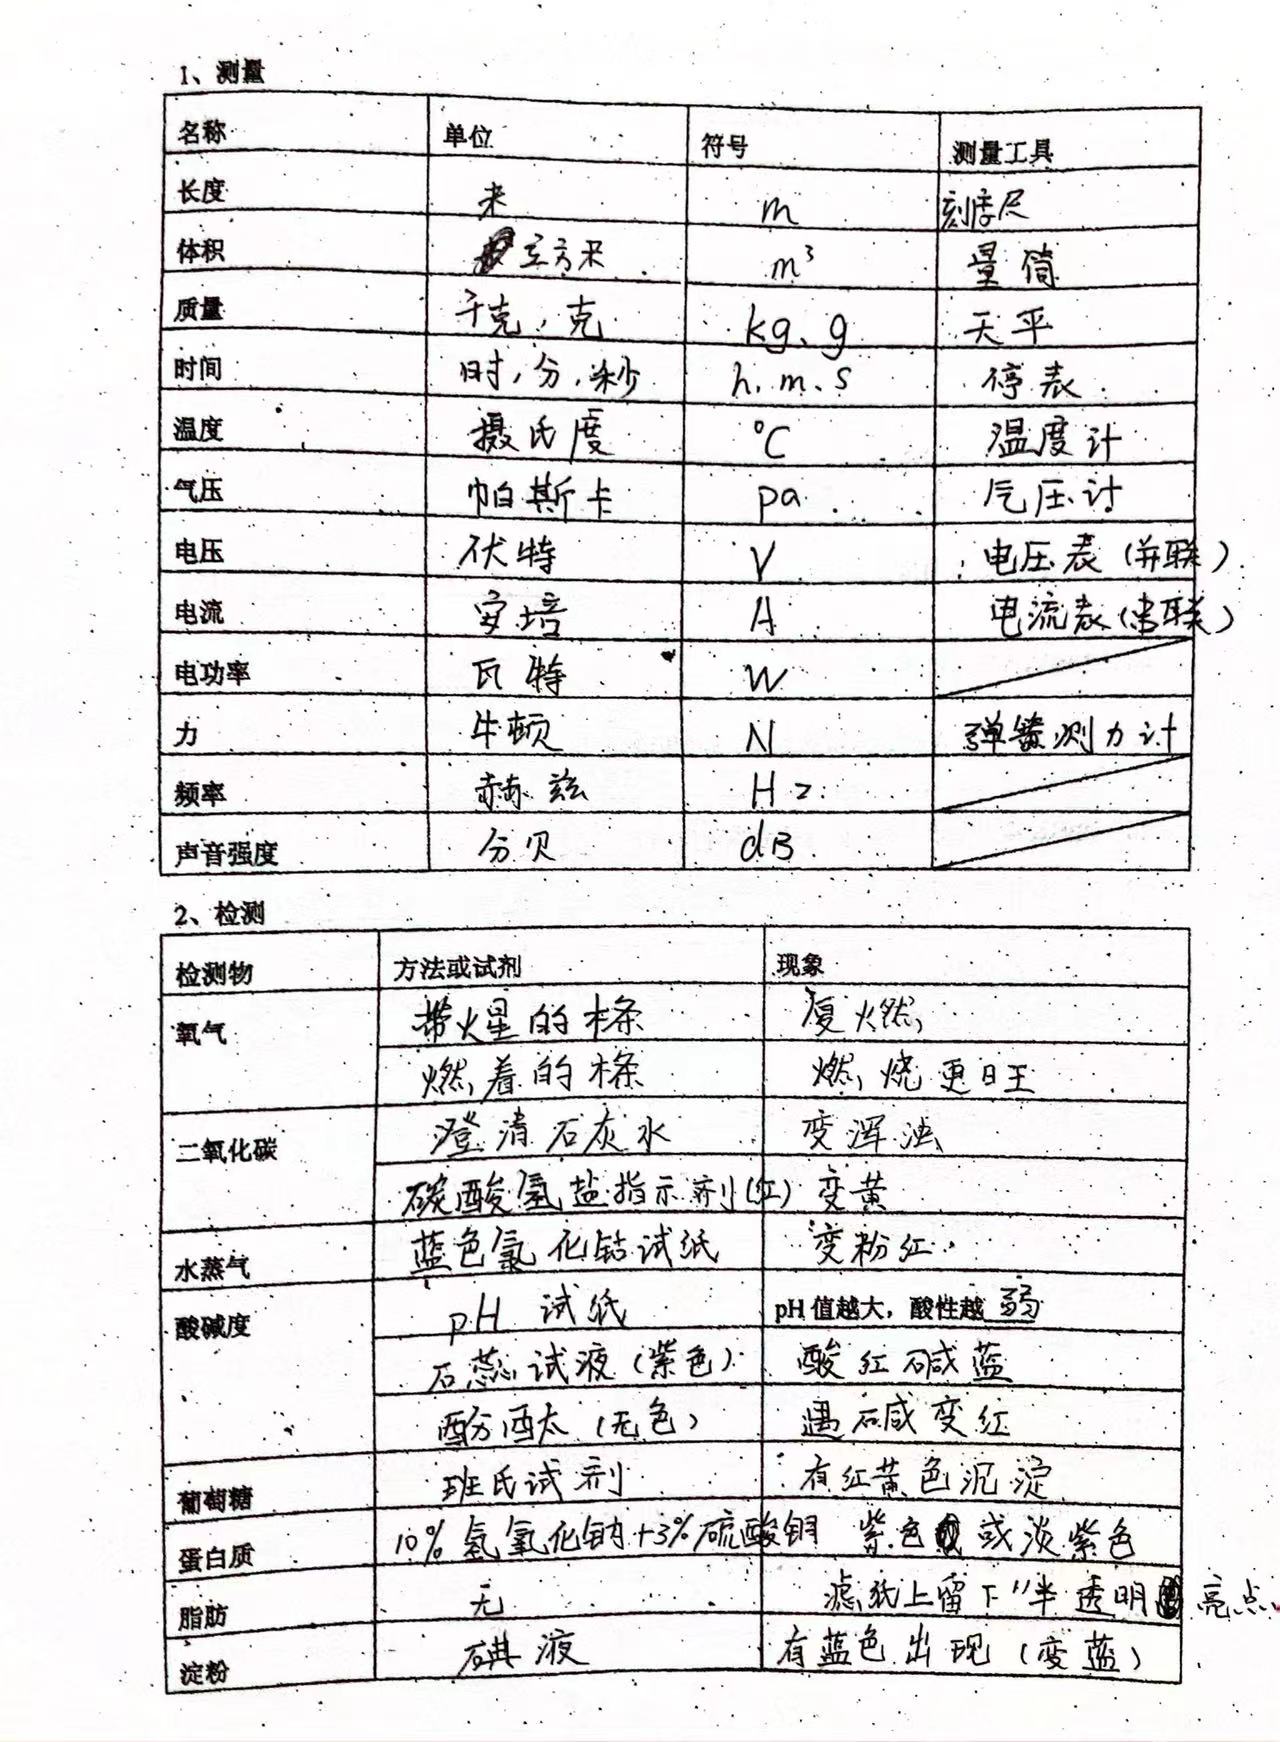 1、测量
名称 单位 符号 测量工具
长度 米 m 刻度尺
体积 立方米 m³ 量筒
质量 千克，克 kg、g 天平
时间 时，分，秒 h、m、s 停表
温度 摄氏度 ℃ 温度计
气压 帕斯卡 pa 气压计
电压 伏特 V 电压表（并联）
电流 安培 A 电流表（串联）
电功率 瓦特 W
力 牛顿 N 弹簧测力计
频率 赫兹 Hz
声音强度 分贝 dB
2、检测
检测物 方法或试剂 现象
氧气 带火星的木条 复燃
燃着的木条 燃烧更旺
二氧化碳 澄清石灰水 变浑浊
碳酸氢盐指示剂（红） 变黄
水蒸气 蓝色氯化钴试纸 变粉红
酸碱度 pH 试纸 pH 值越大，酸性越弱
石蕊试液（紫色） 酸红碱蓝
酚酞（无色） 遇碱变红
葡萄糖 班氏试剂 有红黄色沉淀
蛋白质 10%氢氧化钠+3%硫酸铜 紫色或淡紫色
脂肪 无 滤纸上留下"半透明亮点
淀粉 碘液 有蓝色出现（变蓝）